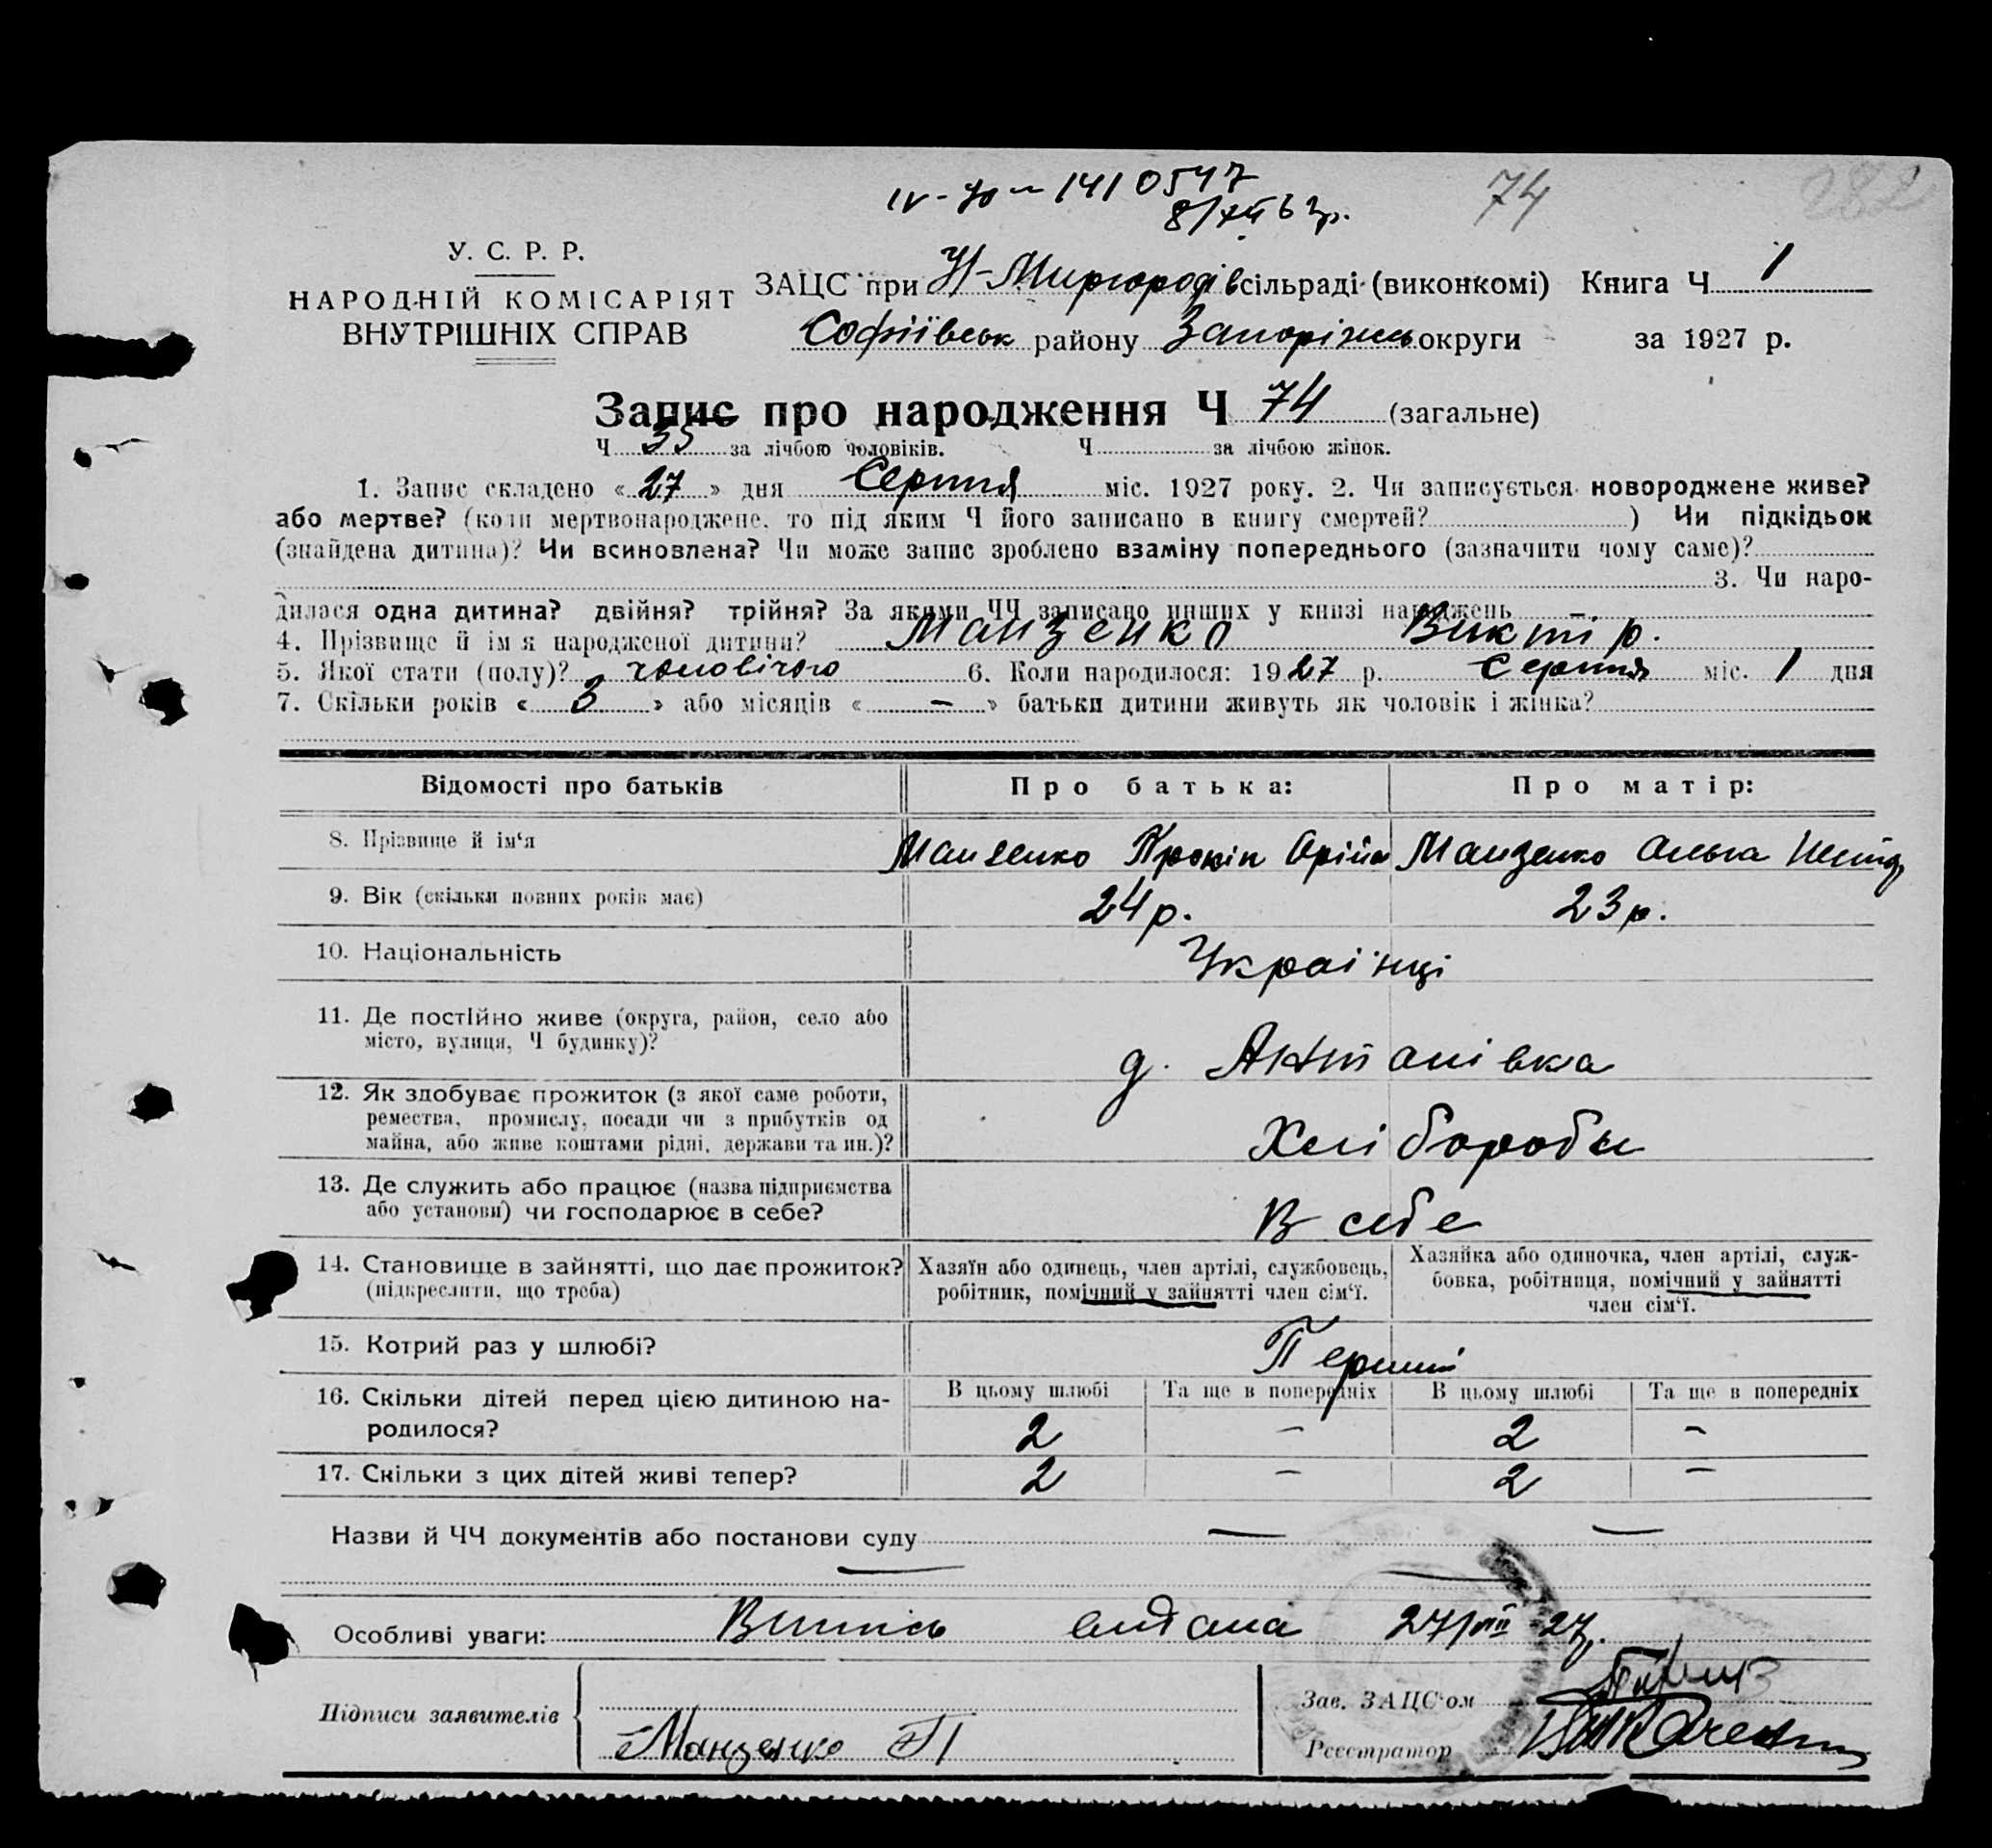 IV-ЯР 1410547
8/XII 63р.
74
282
У. С. Р. Р.
НАРОДНІЙ КОМІСАРІЯТ
ВНУТРІШНІХ СПРАВ
ЗАЦС при Н-Миргородів сільраді (виконкомі) Книга Ч 1
Софіївськ району Запорізьк округи за 1927 р.
Запис про народження Ч 74 (загальне)
Ч 35 за лічбою чоловіків. Ч за лічбою жінок.
1. Запис складено « 27 » дня Серпня міс. 1927 року. 2. Чи записується новороджене живе?
або мертве? (коли мертвонароджене, то під яким Ч його записано в книгу смертей? ) Чи підкідьок
(знайдена дитина)? Чи всиновлена? Чи може запис зроблено взаміну попереднього (зазначити чому саме)?
3. Чи наро-
дилася одна дитина? двійня? трійня? За якими ЧЧ записано инших у книзі народжень –
4. Прізвище й ім'я народженої дитини? Манзенко Виктір.
5. Якої стати (полу)? чоловічого 6. Коли народилося: 1927 р. Серпня міс. 1 дня
7. Скільки років « 3 » або місяців « – » батьки дитини живуть як чоловік і жінка?
Відомості про батьків Про батька: Про матір:
8. Прізвище й ім'я Манзенко Прокіп Манзенко Олька
9. Вік (скільки повних років має) 24р. 23р.
10. Національність Українці
11. Де постійно живе (округа, район, село або
місто, вулиця, Ч будинку)? д. Антонівка
12. Як здобуває прожиток (з якої саме роботи,
ремества, промислу, посади чи з прибутків од
майна, або живе коштами рідні, держави та ин.)? Хлібороби
13. Де служить або працює (назва підприємства
або установи) чи господарює в себе? В себе
14. Становище в зайнятті, що дає прожиток? Хазяїн або одинець, член артілі, службовець, Хазяйка або одиночка, член артілі, служ-
(підкреслити, що треба) робітник, помічний у зайнятті член сім'ї. бовка, робітниця, помічний у зайнятті
член сім'ї.
15. Котрий раз у шлюбі? Перший
16. Скільки дітей перед цією дитиною на- В цьому шлюбі Та ще в попередніх В цьому шлюбі Та ще в попередніх
родилося? 2 – 2 –
17. Скільки з цих дітей живі тепер? 2 – 2 –
Назви й ЧЧ документів або постанови суду — —
— —
Особливі уваги: Випись видана 27/VIII 27р.
Підписи заявителів Манзенко П
Зав. ЗАЦС'ом
Реєстратор